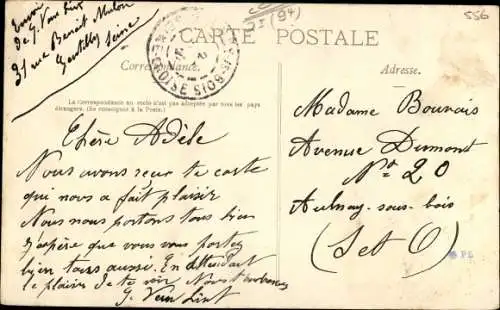 Envoi
de G. Van Lint
31 rue Benoit Malon
Gentilly Seine
(94)
556
CARTE POSTALE
Correspondance.
Adresse.
La Correspondance au recto n'est pas acceptée par tous les pays
étrangers. (Se renseigner à la Poste.)
Chère Adèle
Nous avons recu te carte
qui nous a fait plaisir
Nous nous portons tous bien
j'aspère que vous vous portez
bien tous aussi. En attendant
le plaisir de te voir Nous t'embrassons
G. Van Lint
Madame Bouvais
Avenue Dumont
No 20
Aulnay-sous-bois
(Set O)